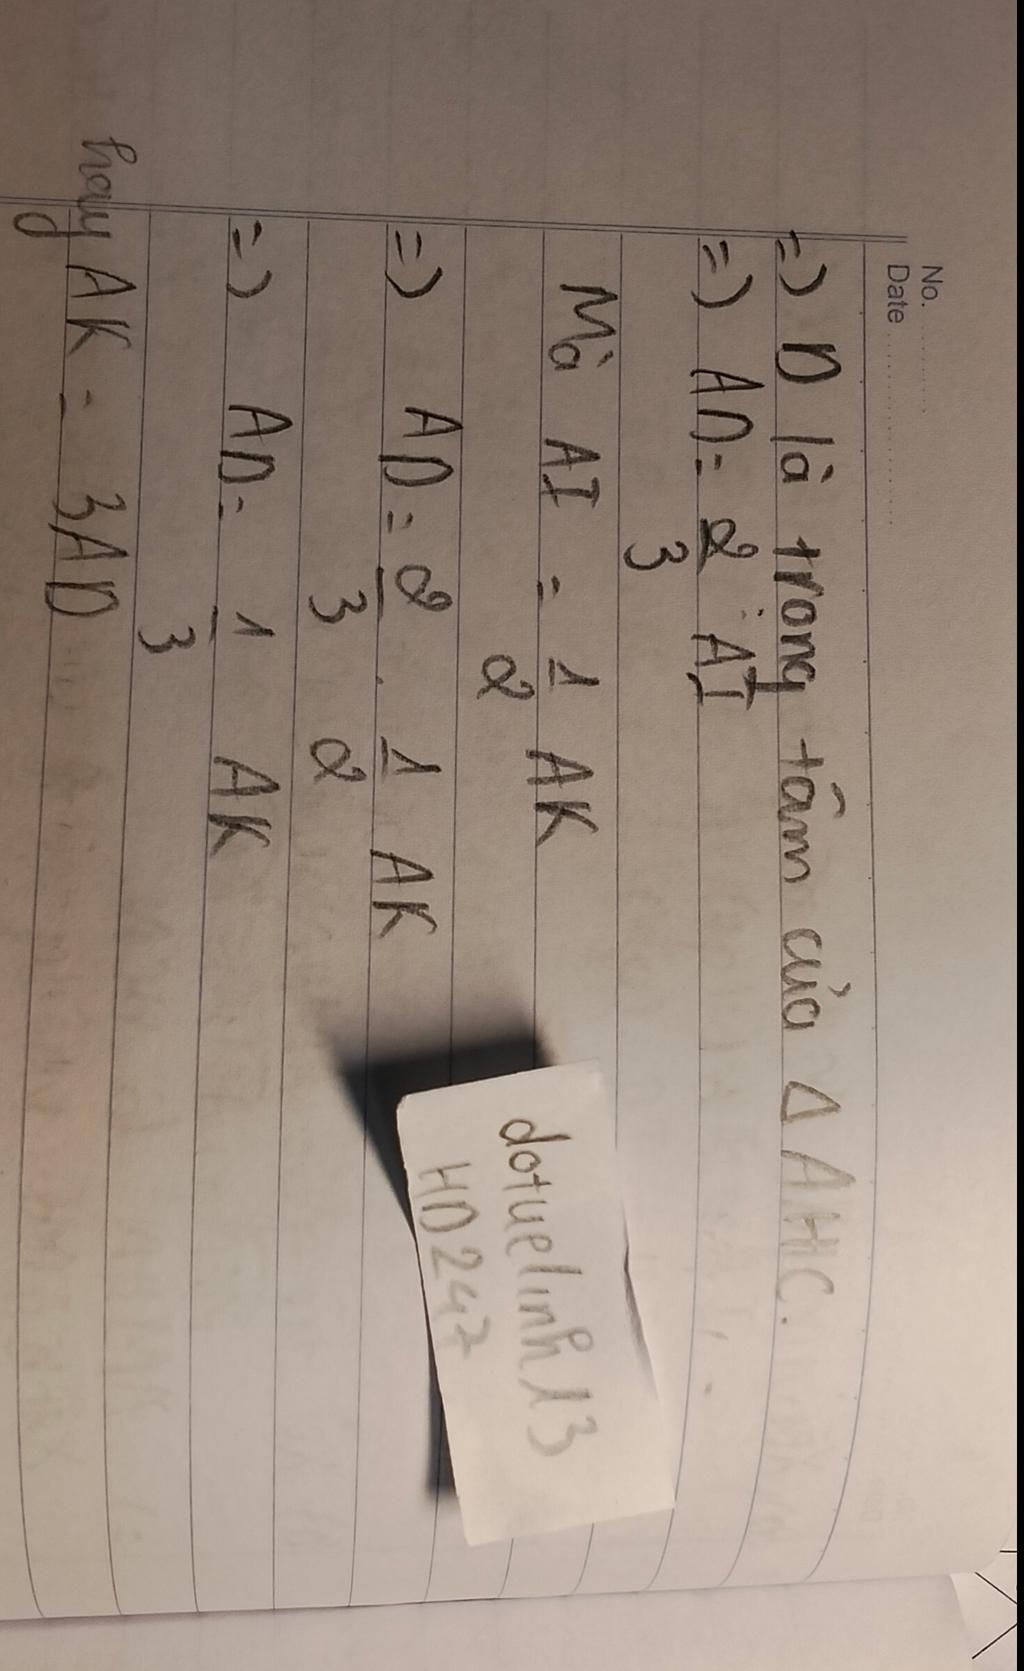 No.
Date
=) D là trọng tâm của Δ AHC.
=) AD = 2/3 AI
Mà AI = 1/2 AK
=) AD = 2/3 . 1/2 AK
=) AD = 1/3 AK
hay AK = 3AD
dotuelinh13
HD247